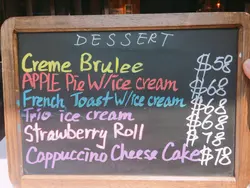 DESSERT
Creme Brulee $58
APPLE Pie W/ice cream $68
French Toast W/ice cream $68
Trio ice cream $68
Strawberry Roll $78
Cappuccino Cheese Cake $78